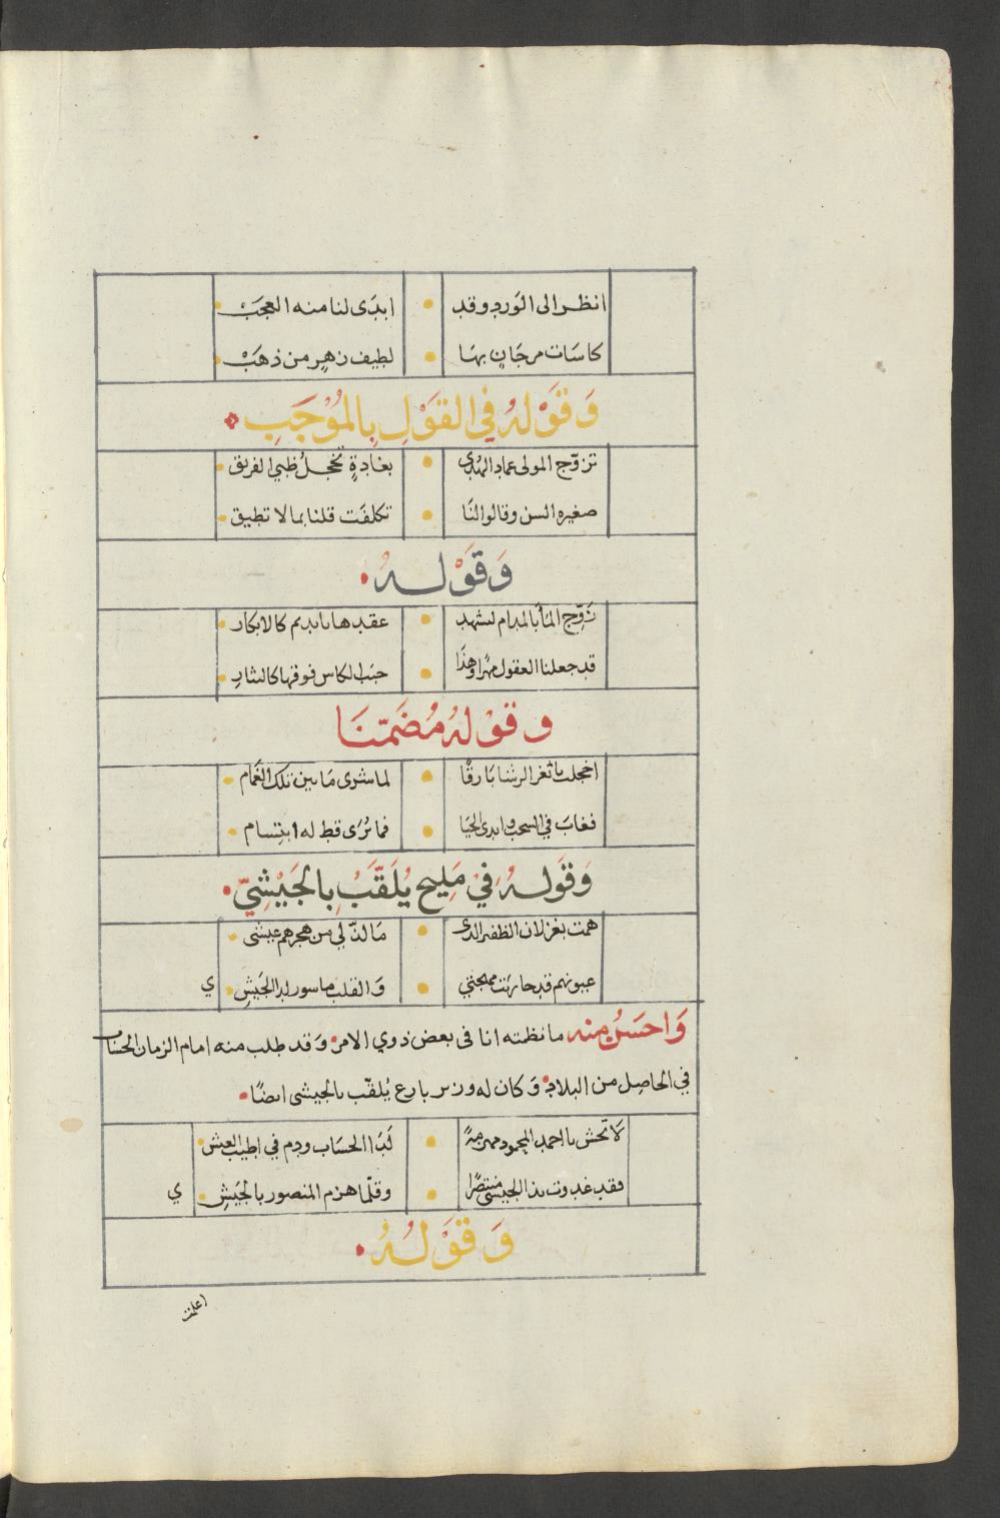 انظر الى الوَرد وقد • ابدَى لنا منه العجَبْ
كاسَات مرجَانٍ بهَا • لطيف زهرٍ من ذهَبْ
وَقَوْلهُ فِي القَوْلِ بِالمُوْجَبِ
تزوّج المولى عماد الهُدى • بغادةٍ تخجلُ ظبي الفريق
صغيره السن وقالوا لنَا • تكلفَت قلنا بما لا تطيق
وَقَوْلهُ
زَوّج المآ بالمدام لشهد • عقدها يا نديم كالابكار
قد جعلنا العقول مهْرًا وهذَا • حبَب الكاس فوقها كالنثارِ
وقوْلهُ مُضَمّنَا
اخجلت يا ثغر الرشا بَارقًا • لما شرى مَا بين تلك الغَمام
فغابَ في السحب وابدى الحيَا • فما نُرَى قط له ابتسام
وَقَولهُ فِيْ مَلِيح يُلَقَّبُ بِالجَيْشِيّ
همت بغزلان الظفير الذى • مَا لذّ لي من هجرهم عيشى
عيونهم قد حاربَت مهجتي • وَالقلب ماسور لدا الجَيشِ ي
وَاحسَنُ منه ما نظمته انا فى بعض ذوي الامر وَقد طلب منه امام الزمان الحسَاب
في الحاصِل من البلاد وَكان له وزير بارع يُلقّب بالجيشى ايضًا
لَا تخش يا احمد المحمود مهزمةً • لَدَا الحسَاب ودم في اطيب العيش
فقد غدوت بذا الجيشى منتصرًا • وقلّما هزم المنصور بالجَيشِ ي
وَقَوْلهُ